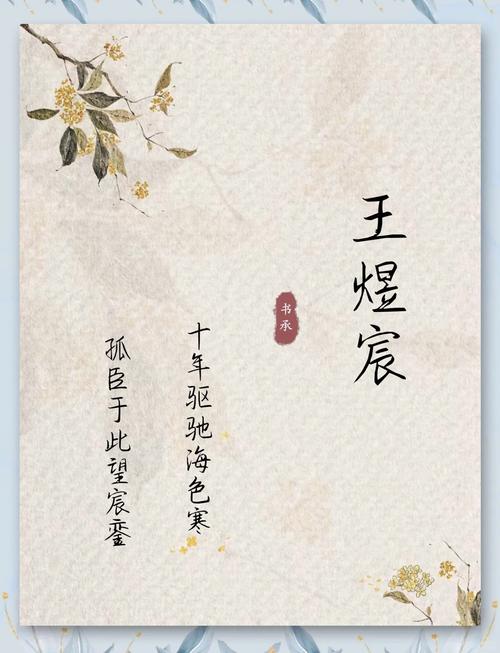 王煜宸
书承
十年驱驰海色寒
孤臣于此望宸銮